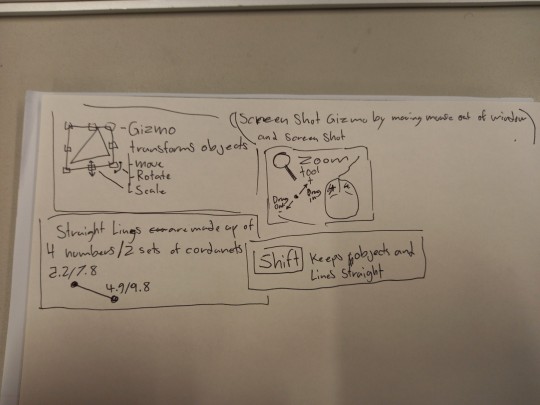 - Gizmo
transforms objects
- move
- Rotate
- Scale
(Screen Shot Gizmo by moving mouse out of window
and Screen Shot
Zoom
tool
+
Drag
out
-
Drag
in
Straight Lines are made up of
4 numbers/2 sets of cordanets
2.2/7.8
4.9/9.8
Shift
Keeps objects and
Lines Straight